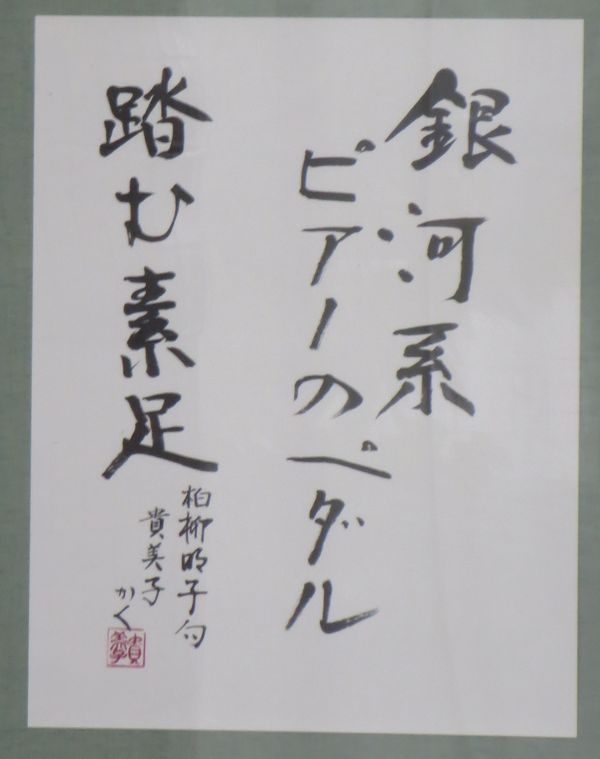 銀河系
ピアノのペダル
踏む素足
柏柳明子句
貴美子かく